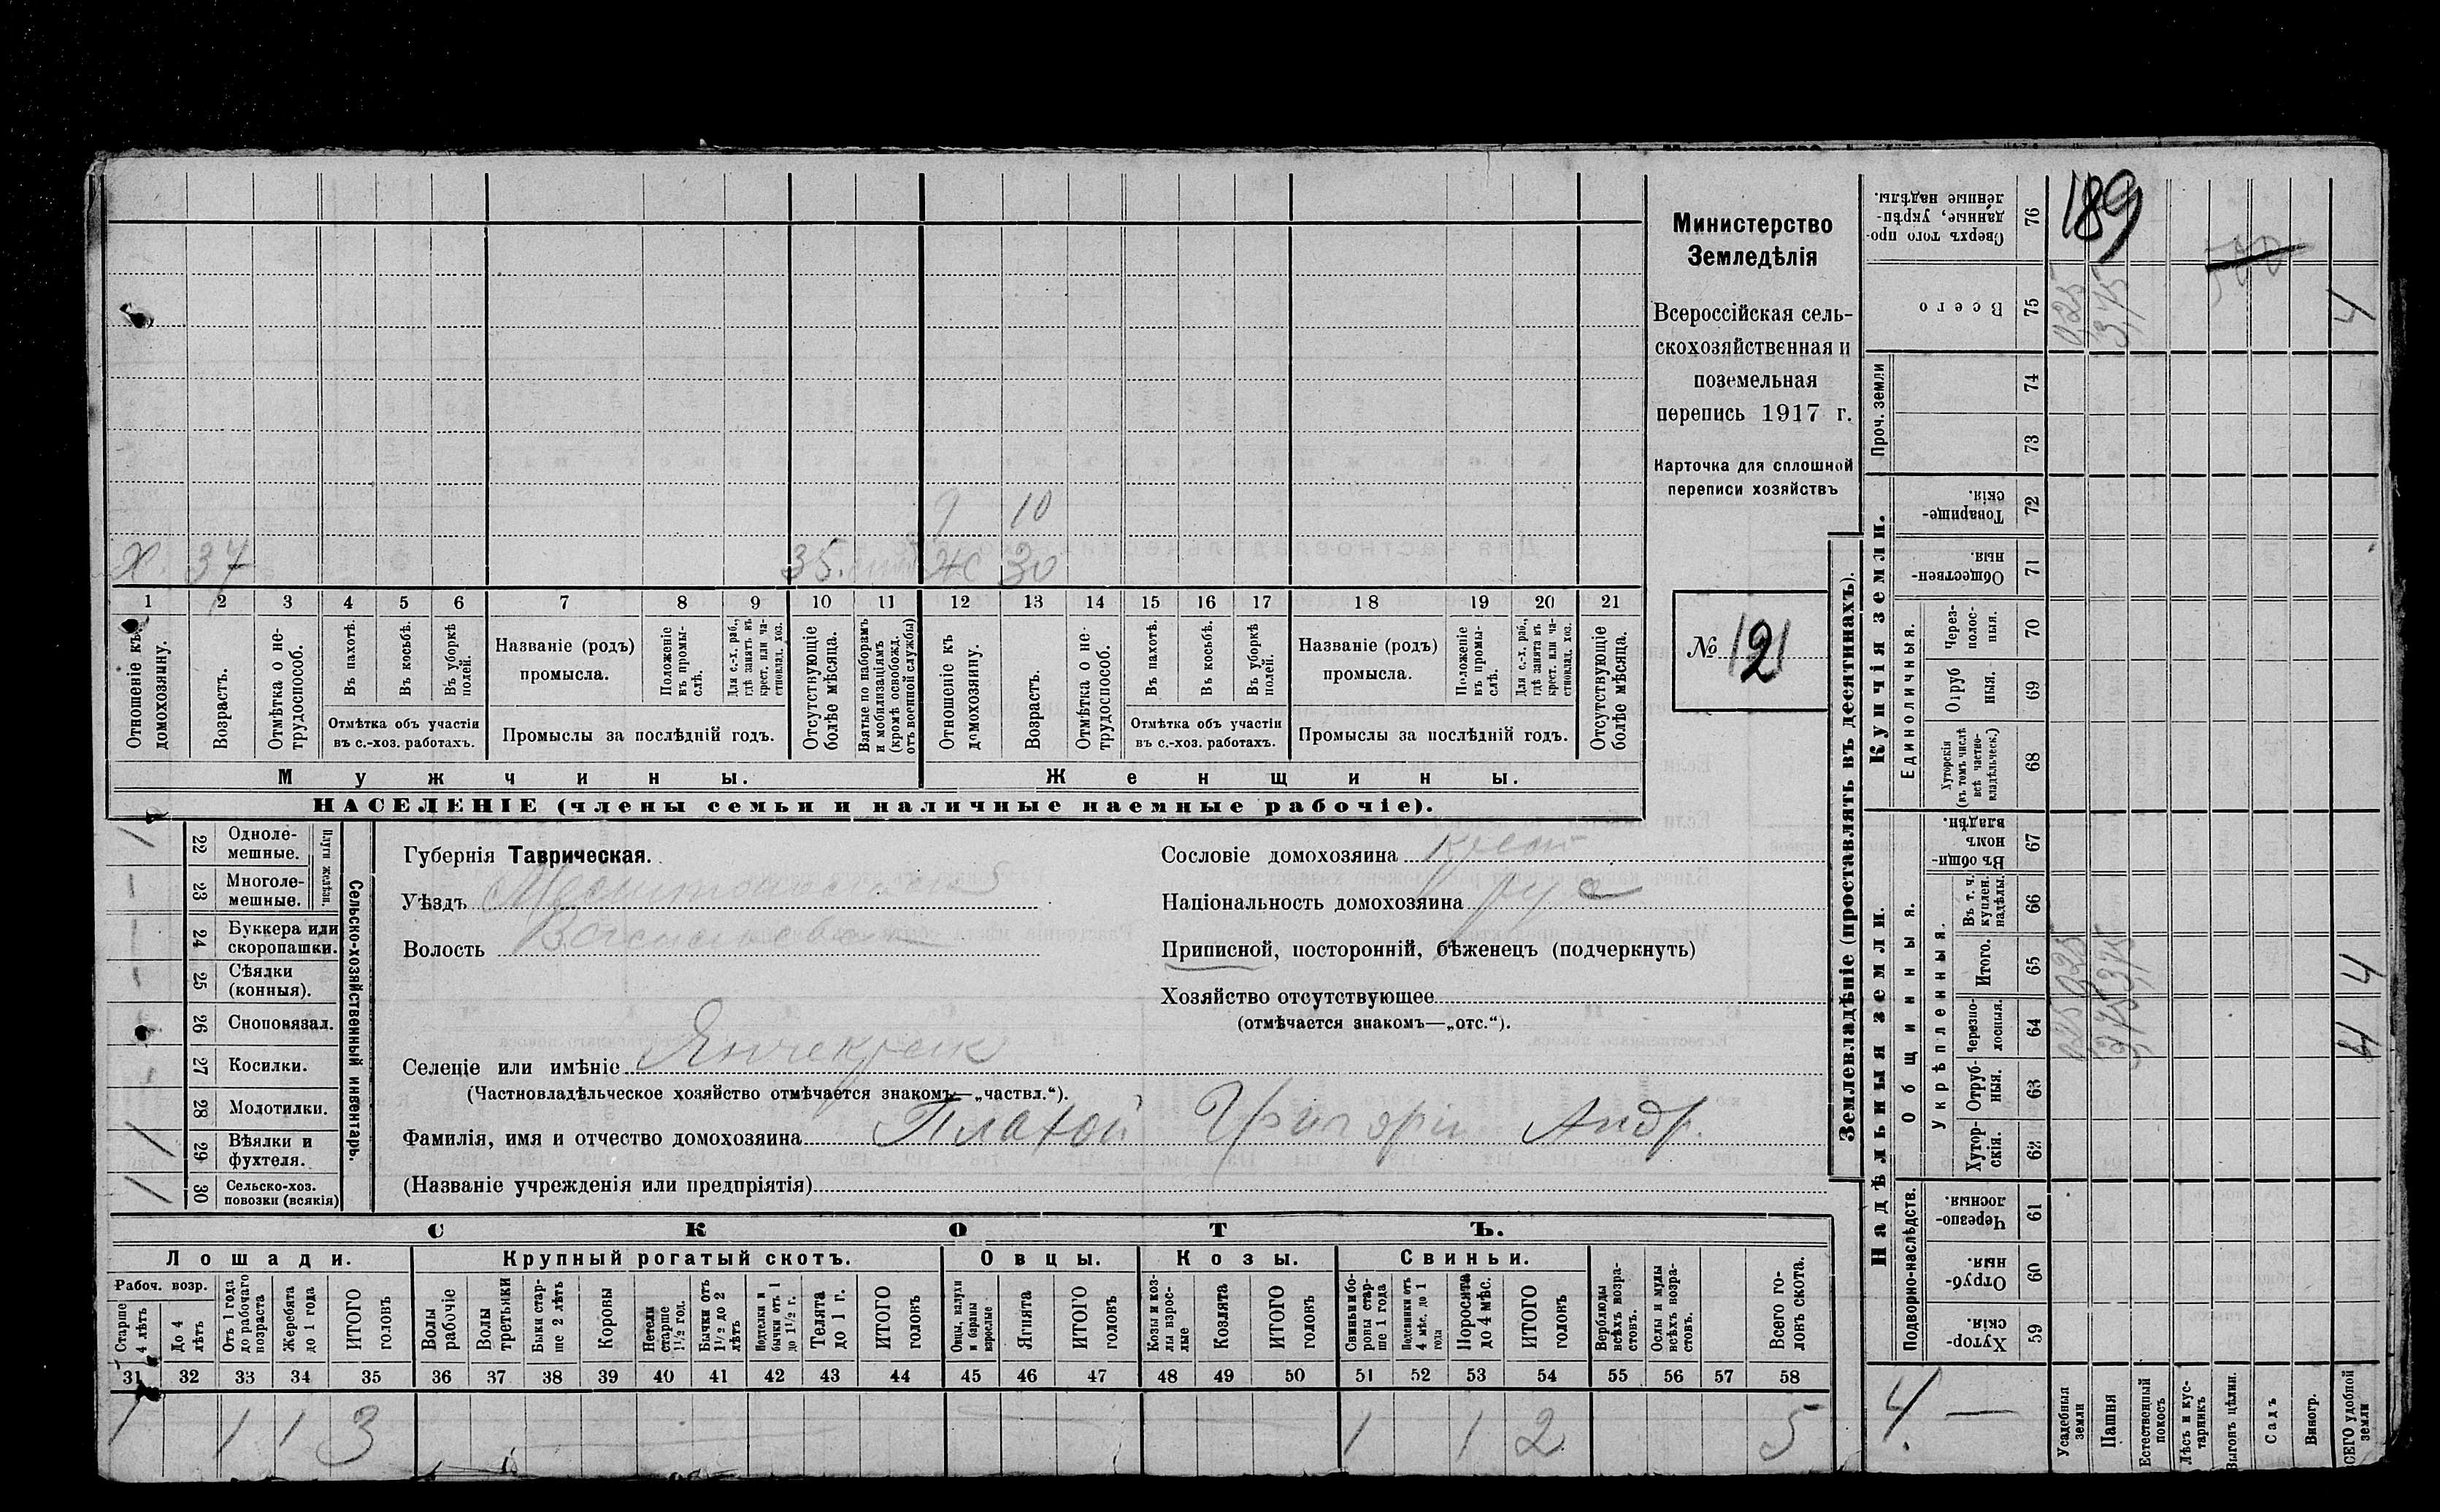 Министерство
Земледѣлія
Всероссійская сель-
скохозяйственная и
поземельная
перепись 1917 г.
Карточка для сплошной
переписи хозяйствъ
№ 121
9 10
Х. 37 35. Ж 30
1 2 3 4 5 6 7 8 9 10 11 12 13 14 15 16 17 18 19 20 21
Отношеніе къ домохозяину.
Возрастъ.
Отмѣтка о не-трудоспособ.
Въ пахотѣ.
Въ косьбѣ.
Въ уборкѣ полей.
Отмѣтка объ участіи
въ с.-хоз. работахъ.
Названіе (родъ)
промысла.
Положеніе въ промы-слѣ.
Для с.-х. раб., гдѣ занятъ въ крест. или ча-стновлад. хоз.
Промыслы за послѣдній годъ.
Отсутствующіе болѣе мѣсяца.
Взятые по наборамъ и мобилизаціямъ (кромѣ освобожд. отъ военной службы)
Отношеніе къ домохозяину.
Возрастъ.
Отмѣтка о не-трудоспособ.
Въ пахотѣ.
Въ косьбѣ.
Въ уборкѣ полей.
Отмѣтка объ участіи
въ с.-хоз. работахъ.
Названіе (родъ)
промысла.
Положеніе въ промы-слѣ.
Для с.-х. раб., гдѣ занята въ крест. или ча-стновлад. хоз.
Промыслы за послѣдній годъ.
Отсутствующіе болѣе мѣсяца.
Мужчины. Женщины.
НАСЕЛЕНІЕ (члены семьи и наличные наемные рабочіе).
Сельско-хозяйственный инвентарь.
Плуги желѣзн.
/ 22 Одноле-мешные.
23 Многоле-мешные.
24 Буккера или скоропашки.
25 Сѣялки (конныя).
26 Сноповязал.
27 Косилки.
28 Молотилки.
/ 29 Вѣялки и фухтеля.
/ 30 Сельско-хоз. повозки (всякія)
Губернія Таврическая.
Уѣздъ
Волость
Сословіе домохозяина
Національность домохозяина рус
Приписной, посторонній, бѣженецъ (подчеркнуть)
Хозяйство отсутствующее
(отмѣчается знакомъ—„отс.“).
Селеніе или имѣніе Янчекрак
(Частновладѣльческое хозяйство отмѣчается знакомъ—„частвл.“).
Фамилія, имя и отчество домохозяина Плахой Григорій Андр.
(Названіе учрежденія или предпріятія)
СКОТЪ.
Лошади. Крупный рогатый скотъ. Овцы. Козы. Свиньи.
Рабоч. возр.
Старше 4 лѣтъ
До 4 лѣтъ
Отъ 1 года до рабочаго возраста
Жеребята до 1 года
ИТОГО головъ
Волы рабочіе
Волы третьяки
Быки стар-ше 2 лѣтъ
Коровы
Нетели старше 1 1/2 год.
Бычки отъ 1 1/2 до 2 лѣтъ
Подтелки и бычки отъ 1 до 1 1/2 г.
Телята до 1 г.
ИТОГО головъ
Овцы, валухи и бараны взрослые
Ягнята
ИТОГО головъ
Козы и коз-лы взрос-лые
Козлята
ИТОГО головъ
Свиньи и бо-ровы стар-ше 1 года
Подсвинки отъ 4 мѣс. до 1 года
Поросята до 4 мѣс.
ИТОГО головъ
Верблюды всѣхъ возра-стовъ.
Ослы и мулы всѣхъ возра-стовъ.
Всего го-ловъ скота.
31 32 33 34 35 36 37 38 39 40 41 42 43 44 45 46 47 48 49 50 51 52 53 54 55 56 57 58
1 1 1 3 1 1 2 5
Землевладѣніе (проставлять въ десятинахъ).
Надѣльныя земли. Купчія земли. Проч. земли
Подворно-наслѣдств.
Общинныя.
Укрѣпленныя.
Единоличныя.
Хутор-скія. 59
Отруб-ныя. 60
Черезпо-лосныя. 61
Хутор-скія. 62
Отруб-ныя. 63
Черезпо-лосныя. 64
Итого. 65
Въ т. ч. куплен. надѣлы. 66
Въ общин-номъ владѣн. 67
Хуторскія (въ томъ числѣ всѣ частно-владѣльческ.) 68
Отруб ныя. 69
Через-полос-ныя. 70
Обществен-ныя. 71
Товарище-скія. 72
73
74
Всего 75
Сверхъ того про-данные, укрѣп-ленные надѣлы. 76
189
Усадебныя земли 025 025 025
Пашня 3,75 3,75 3,75
Естественный покосъ
Лѣсъ и кус-тарникъ
Выгонъ цѣлин.
Садъ
Виногр.
ВСЕГО удобной земли 4 4 4
4. —